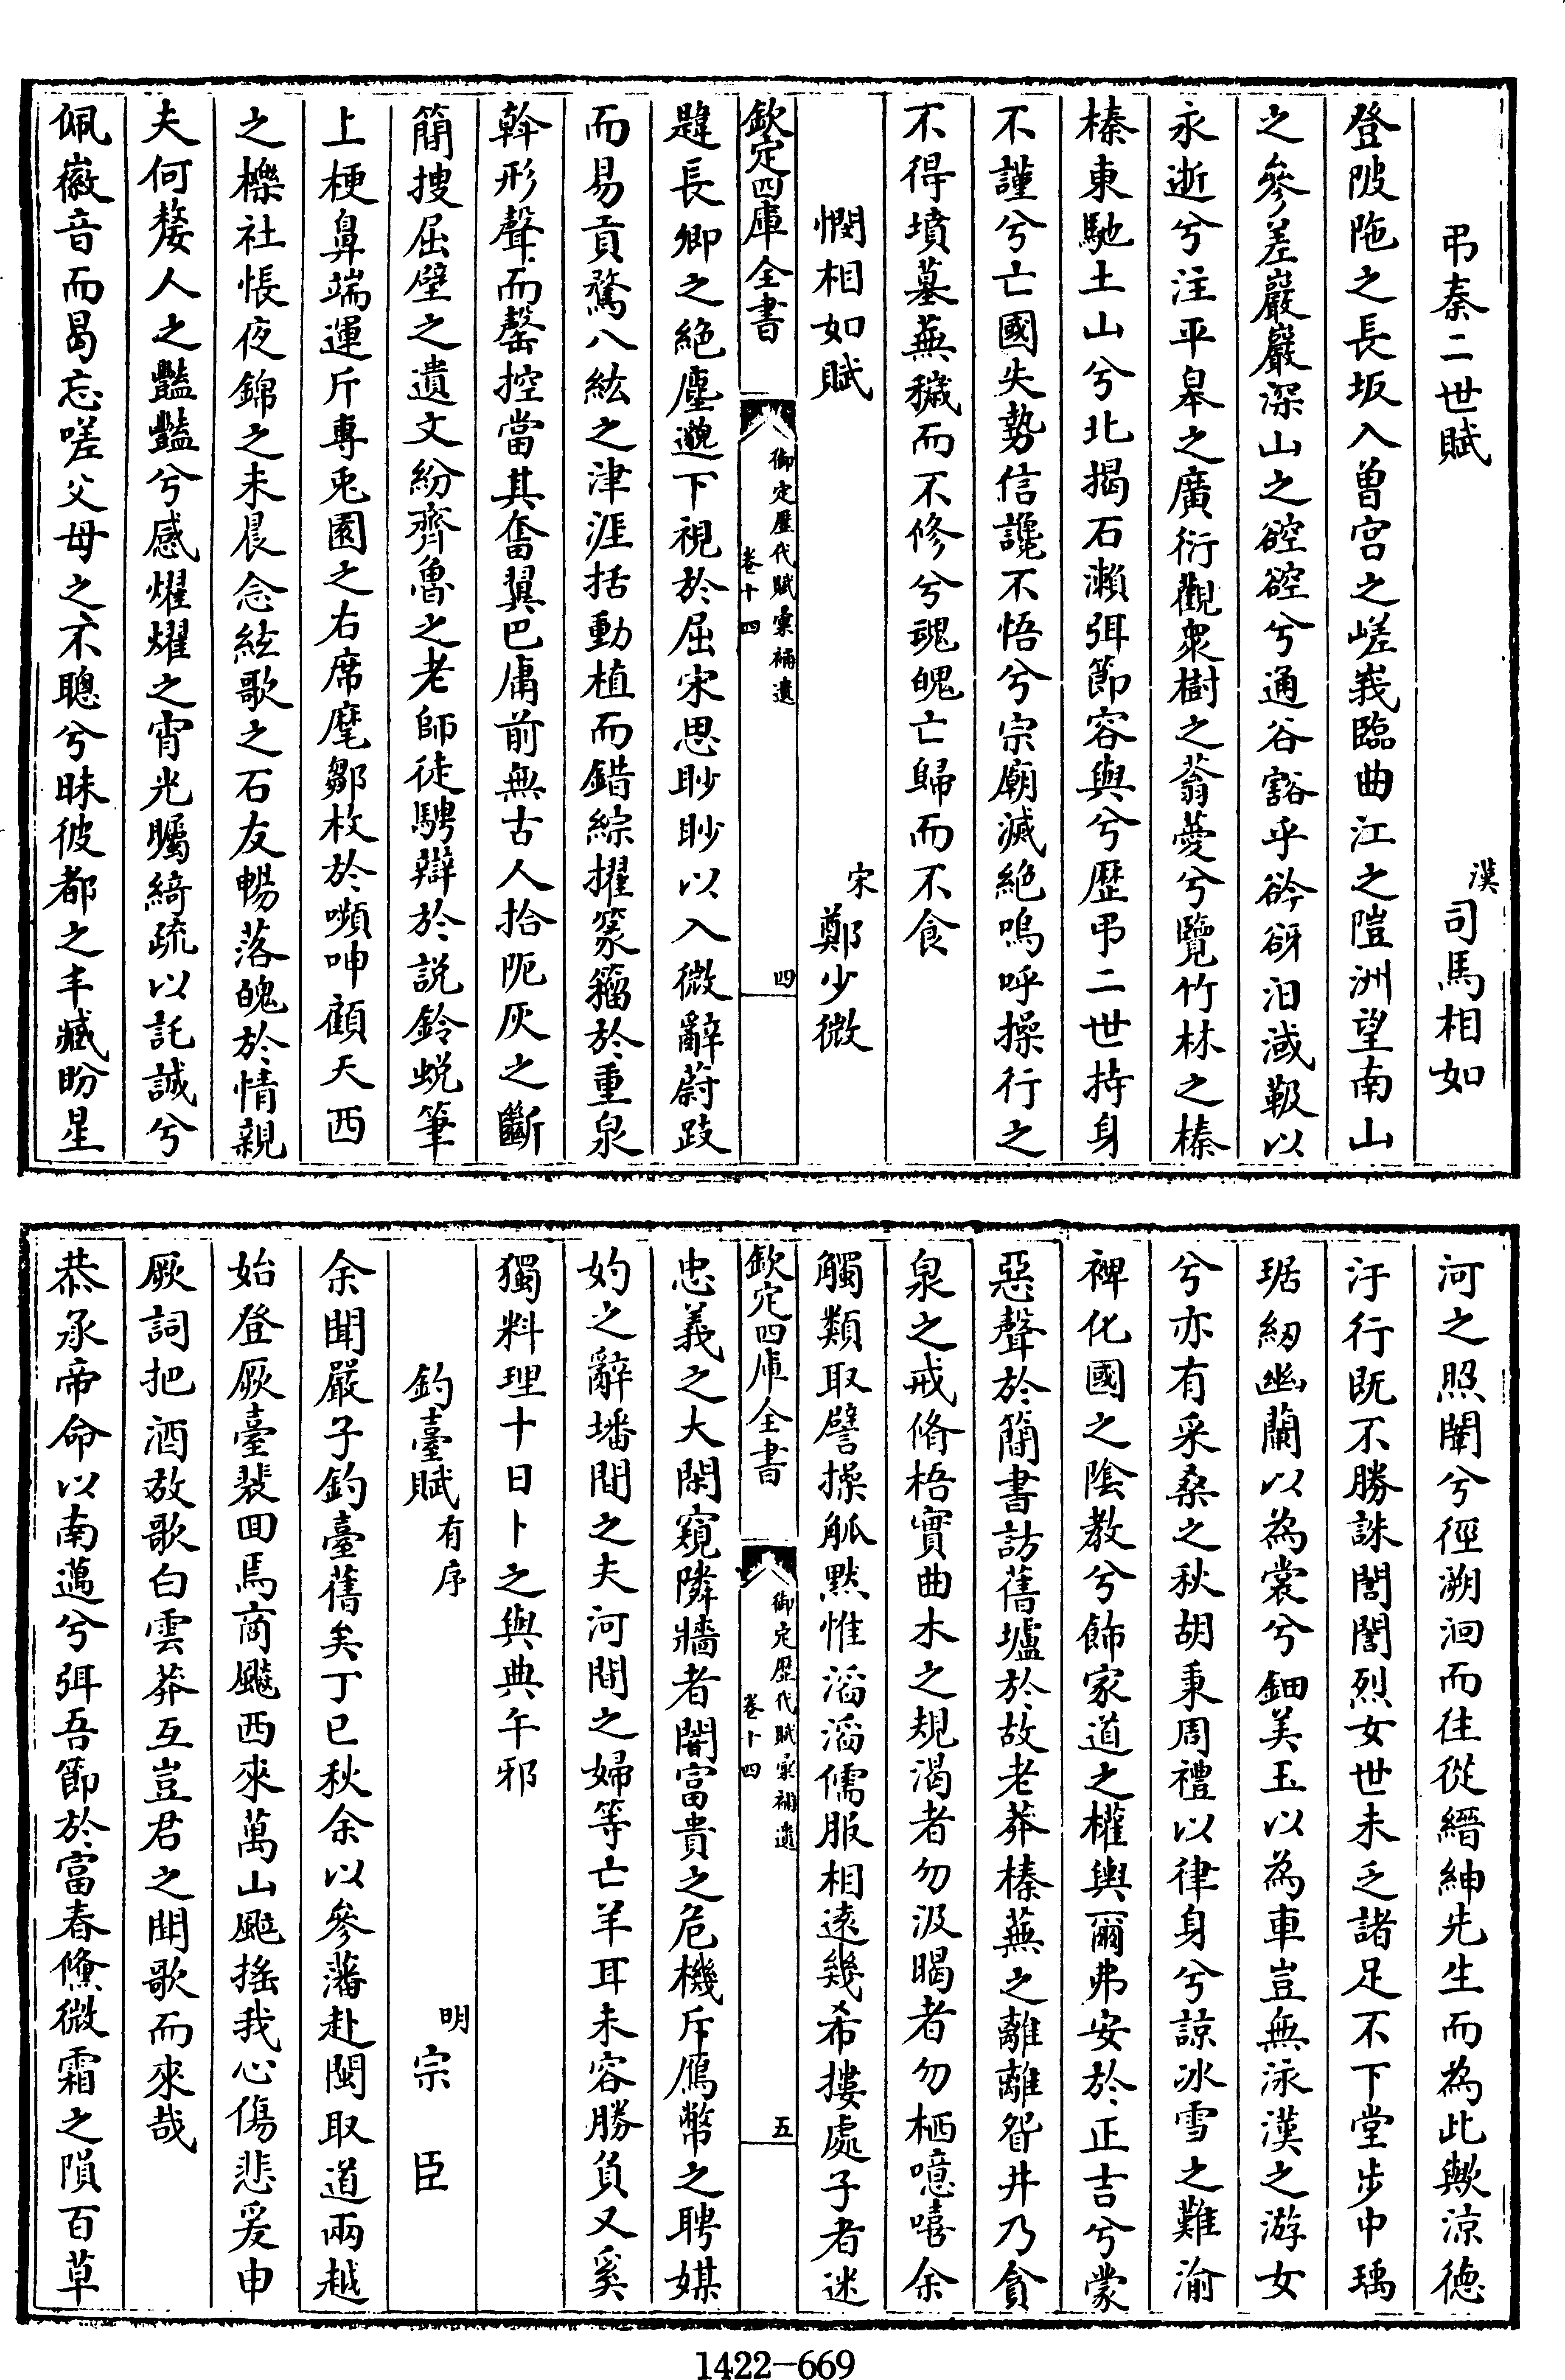 弔秦二世賦　漢司馬相如
登陂陁之長坂入曽宫之嵯峩臨曲江之隑洲望南山
之參差巖巖深山之硿硿兮通谷豁乎谽谺汨淢靸以
永逝兮注平皋之廣衍觀衆樹之蓊薆兮覽竹林之榛
榛東馳土山兮北揭石瀨弭節容與兮歷弔二世持身
不謹兮亡國失勢信讒不悟兮宗廟滅絶嗚呼操行之
不得墳墓蕪穢而不修兮魂魄亡歸而不食
憫相如賦　宋鄭少微
欽定四庫全書　御定歷代賦彙補遺卷十四　四
韙長卿之絶塵邈下視於屈宋思眇眇以入微辭蔚跂
而易貢驚八紘之津涯括動植而錯綜擢篆籀於重泉
斡形聲而罄控當其奮翼巴庸前無古人拾阨灰之斷
簡搜屈壁之遺文紛齊魯之老師徒騁辯於説鈴蛻筆
上梗鼻端運斤專兎園之右席麾鄒枚於嚬呻顧天西
之櫟社悵夜錦之未晨念絃歌之石友暢落魄於情親
夫何嫠人之豔豔兮感燿燿之宵光矚綺疏以託誠兮
佩徽音而曷忘嗟父母之不聰兮昧彼都之丰臧盼星
河之照闈兮徑溯洄而往從縉紳先生而為此歟涼德
汙行既不勝誅誾誾烈女世未乏諸足不下堂步中瑀
琚紉幽蘭以為裳兮鈿美玉以為車豈無泳漢之游女
兮亦有采桑之秋胡秉周禮以律身兮諒冰雪之難渝
裨化國之陰教兮飾家道之權輿爾弗安於正吉兮蒙
惡聲於簡書訪舊壚於故老莽榛蕪之離離眢井乃貪
泉之戒脩梧實曲木之規渴者勿汲暍者勿栖噫嘻余
觸類取譬操觚黙惟滔滔儒服相遠幾希摟處子者迷
欽定四庫全書　御定歷代賦彙補遺卷十四　五
忠義之大閑窺隣牆者闇富貴之危機斥鴈幣之聘媒
妁之辭墦間之夫河間之婦等亡羊耳未容勝負又奚
獨料理十日卜之與典午邪
釣臺賦有序　明宗臣
余聞嚴子釣臺舊矣丁已秋余以參藩赴閩取道兩越
始登厥臺裴回焉商飈西來萬山颭摇我心傷悲爰申
厥詞把酒放歌白雲莽互豈君之聞歌而來哉
恭承帝命以南邁兮弭吾節於富春儵微霜之隕百草
1422—669